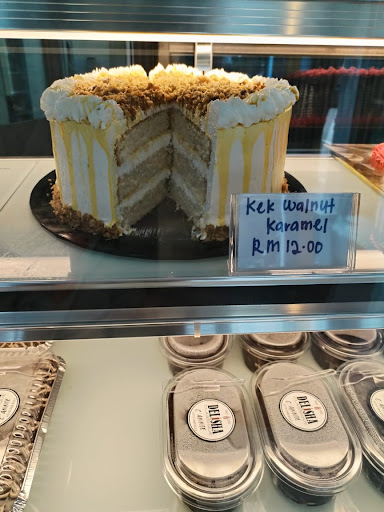 Kek walnut
Karamel
RM 12.00
DELISHA